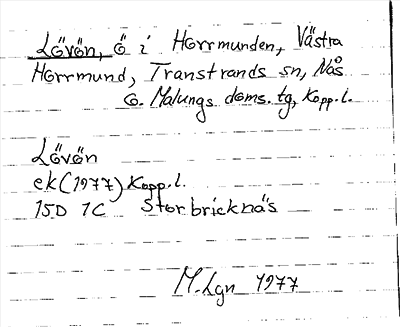 Lövön, ö i Horrmunden, Västra
Horrmund, Transtrands sn, Nås
o. Malungs doms. tg, Kopp.l.
Lövön
ek (1977) Kopp.l.
15D 1C Storbricknäs
M. Lgn 1977